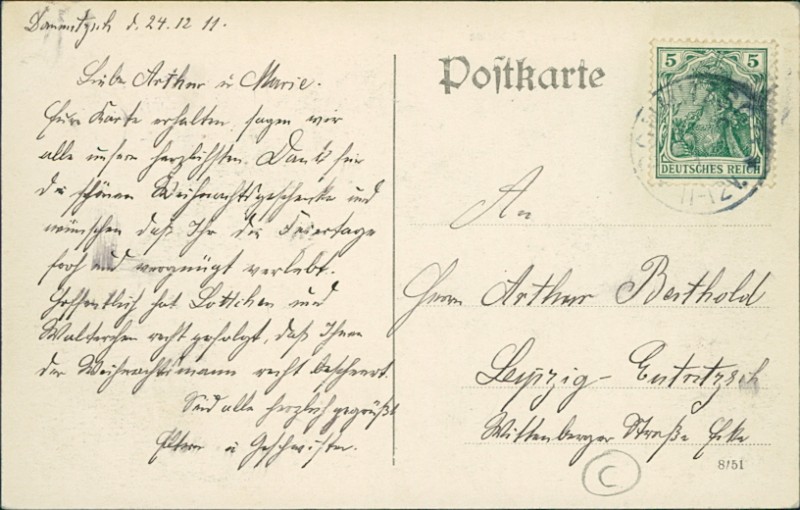 Dommitzsch d. 24.12 11.
Liebe Arthur u Marie.
Eure Karte erhalten, sagen wir
alle unsern herzlichsten Dank für
die schönen Weihnachtsgeschenke und
wünschen daß Ihr die Feiertage
froh und vergnügt verlebt.
Hoffentlich hat Lottchen und
Walterchen recht gefolgt, daß Ihnen
der Weihnachtsmann recht bescheert.
Seid alle herzlich gegrüßt
Eltern u Geschwister.
Postkarte
5 5
DEUTSCHES REICH
11-12V.
An
Herrn Arthur Berthold
Leipzig-Eutritzsch
Wittenberger Straße Ecke
8/51
C